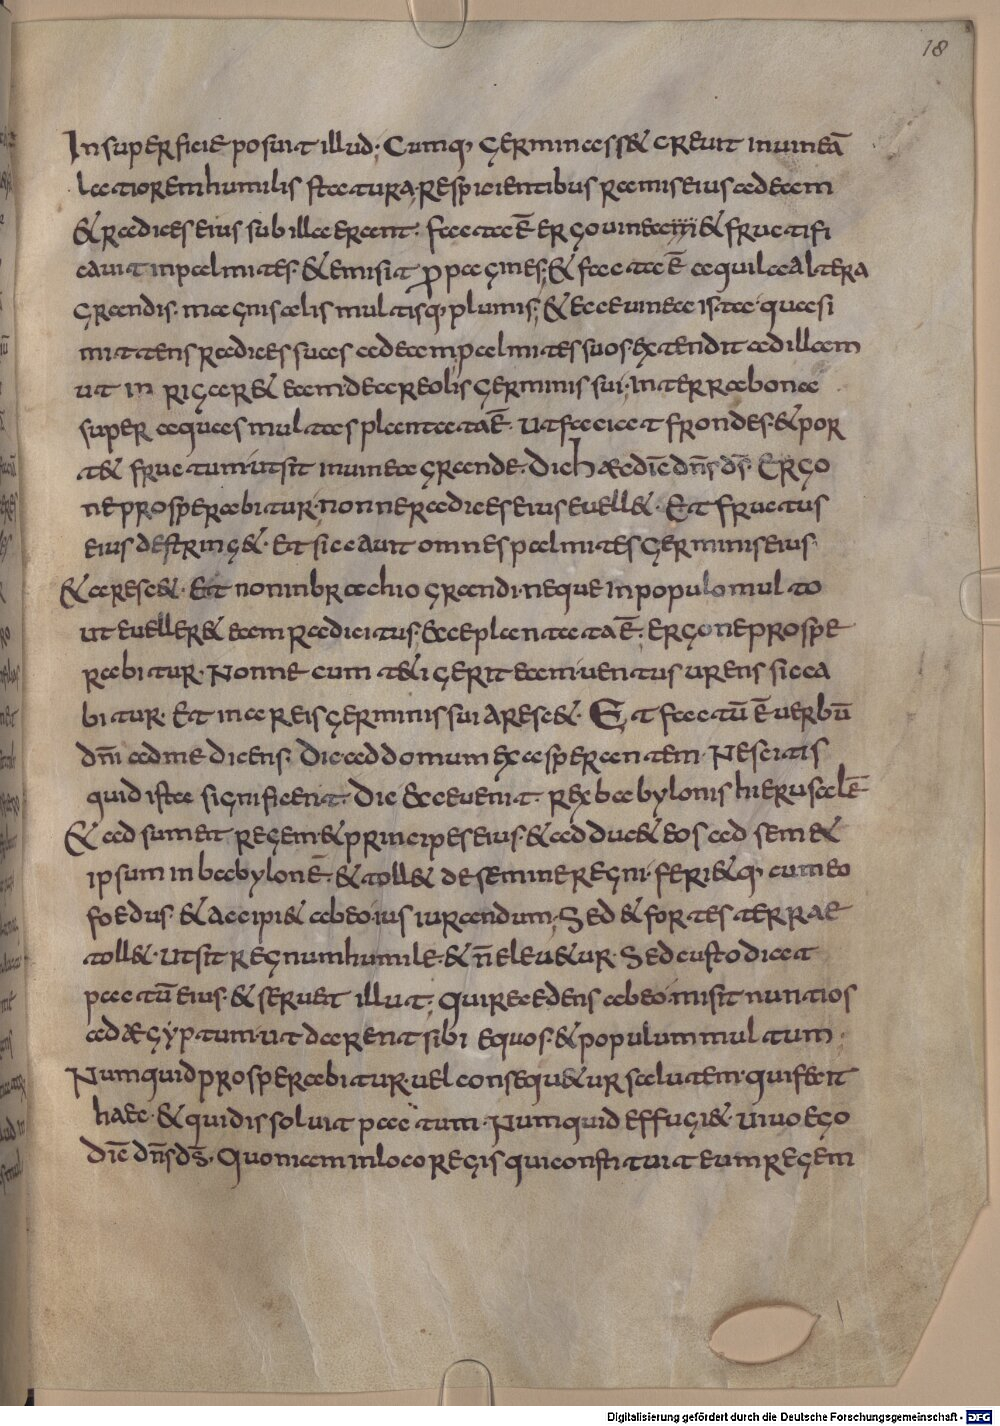 18
In superficie posuit illud; Cumq; germinass& creuit in uineā
latiorem humilis statura. Respicientibus ramis eius ad eam
& radices eius sub illa erant. facta ē ergo uinea & fructifi
cauit in palmites. & emisit ꝓpagines; & facta ē aquila altera
grandis. magnis alis multisq; plumis; & ecce uinea ista. quasi
mittens radices suas ad eam palmites suos extendit ad illam
ut inrigar& eam de areolis germinis sui; In terra bona
super aquas multas plantata ē. Ut faciat frondes. & por
t& fructum. ut sit in uinea grande. Dic haec dic̄ dn̄s ds̄. Ergo
ne prosperabitur. nonne radices eius euell&. Et fructus
eius destring&. Et siccauit omnes palmites germinis eius
& aresc&. Et non in brachio grandi. neque in populo multo
ut eueller& eam radicitus. ecce plantata ē. Ergone prospe
rabitur. Nonne cum t&igerit eam uentus urens sicca
bitur. Et in areis germinis sui aresc&. Et factū ē uerbū
dn̄i ad me dicens. Dic ad domum exasperantem. Nescitis
quid ista significent. Dic ecce uenit. rex babylonis hierusalē
& adsum& regem & principes eius. & adduc& eos ad sem&
ipsum in babylonē. & toll& de semine regni. feri&q; cum eo
foedus. & accipi& ab eo ius iurandum; Sed & fortes terrae
toll&. ut sit regnum humile. & n̄ eleu&ur. Sed custodiat
pactū eius. & seruet illut; Qui recedens ab eo misit nuntios
ad aegyptum. ut darent sibi equos. & populum multum.
Numquid prosperabitur. uel consequ&ur salutem. qui fecit
haec. & qui dissoluit pactum. Numquid effugi&. Uiuo ego
dic̄ dn̄s ds̄. Quoniam in loco regis qui constituit eum regem
Digitalisierung gefördert durch die Deutsche Forschungsgemeinschaft - DFG